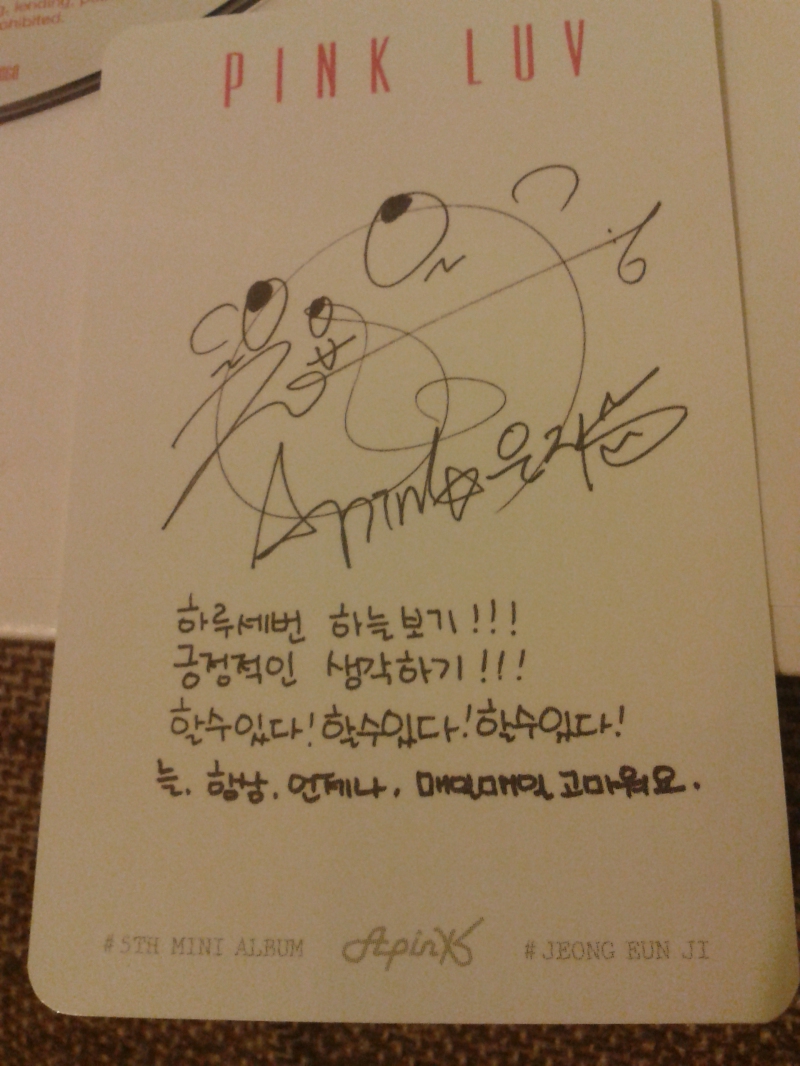 prohibited.
PINK LUV
Apink☆은지
하루세번 하늘보기!!!
긍정적인 생각하기!!!
할수있다! 할수있다! 할수있다!
늘. 항상. 언제나. 매일매일 고마워요.
#5TH MINI ALBUM Apink #JEONG EUN JI